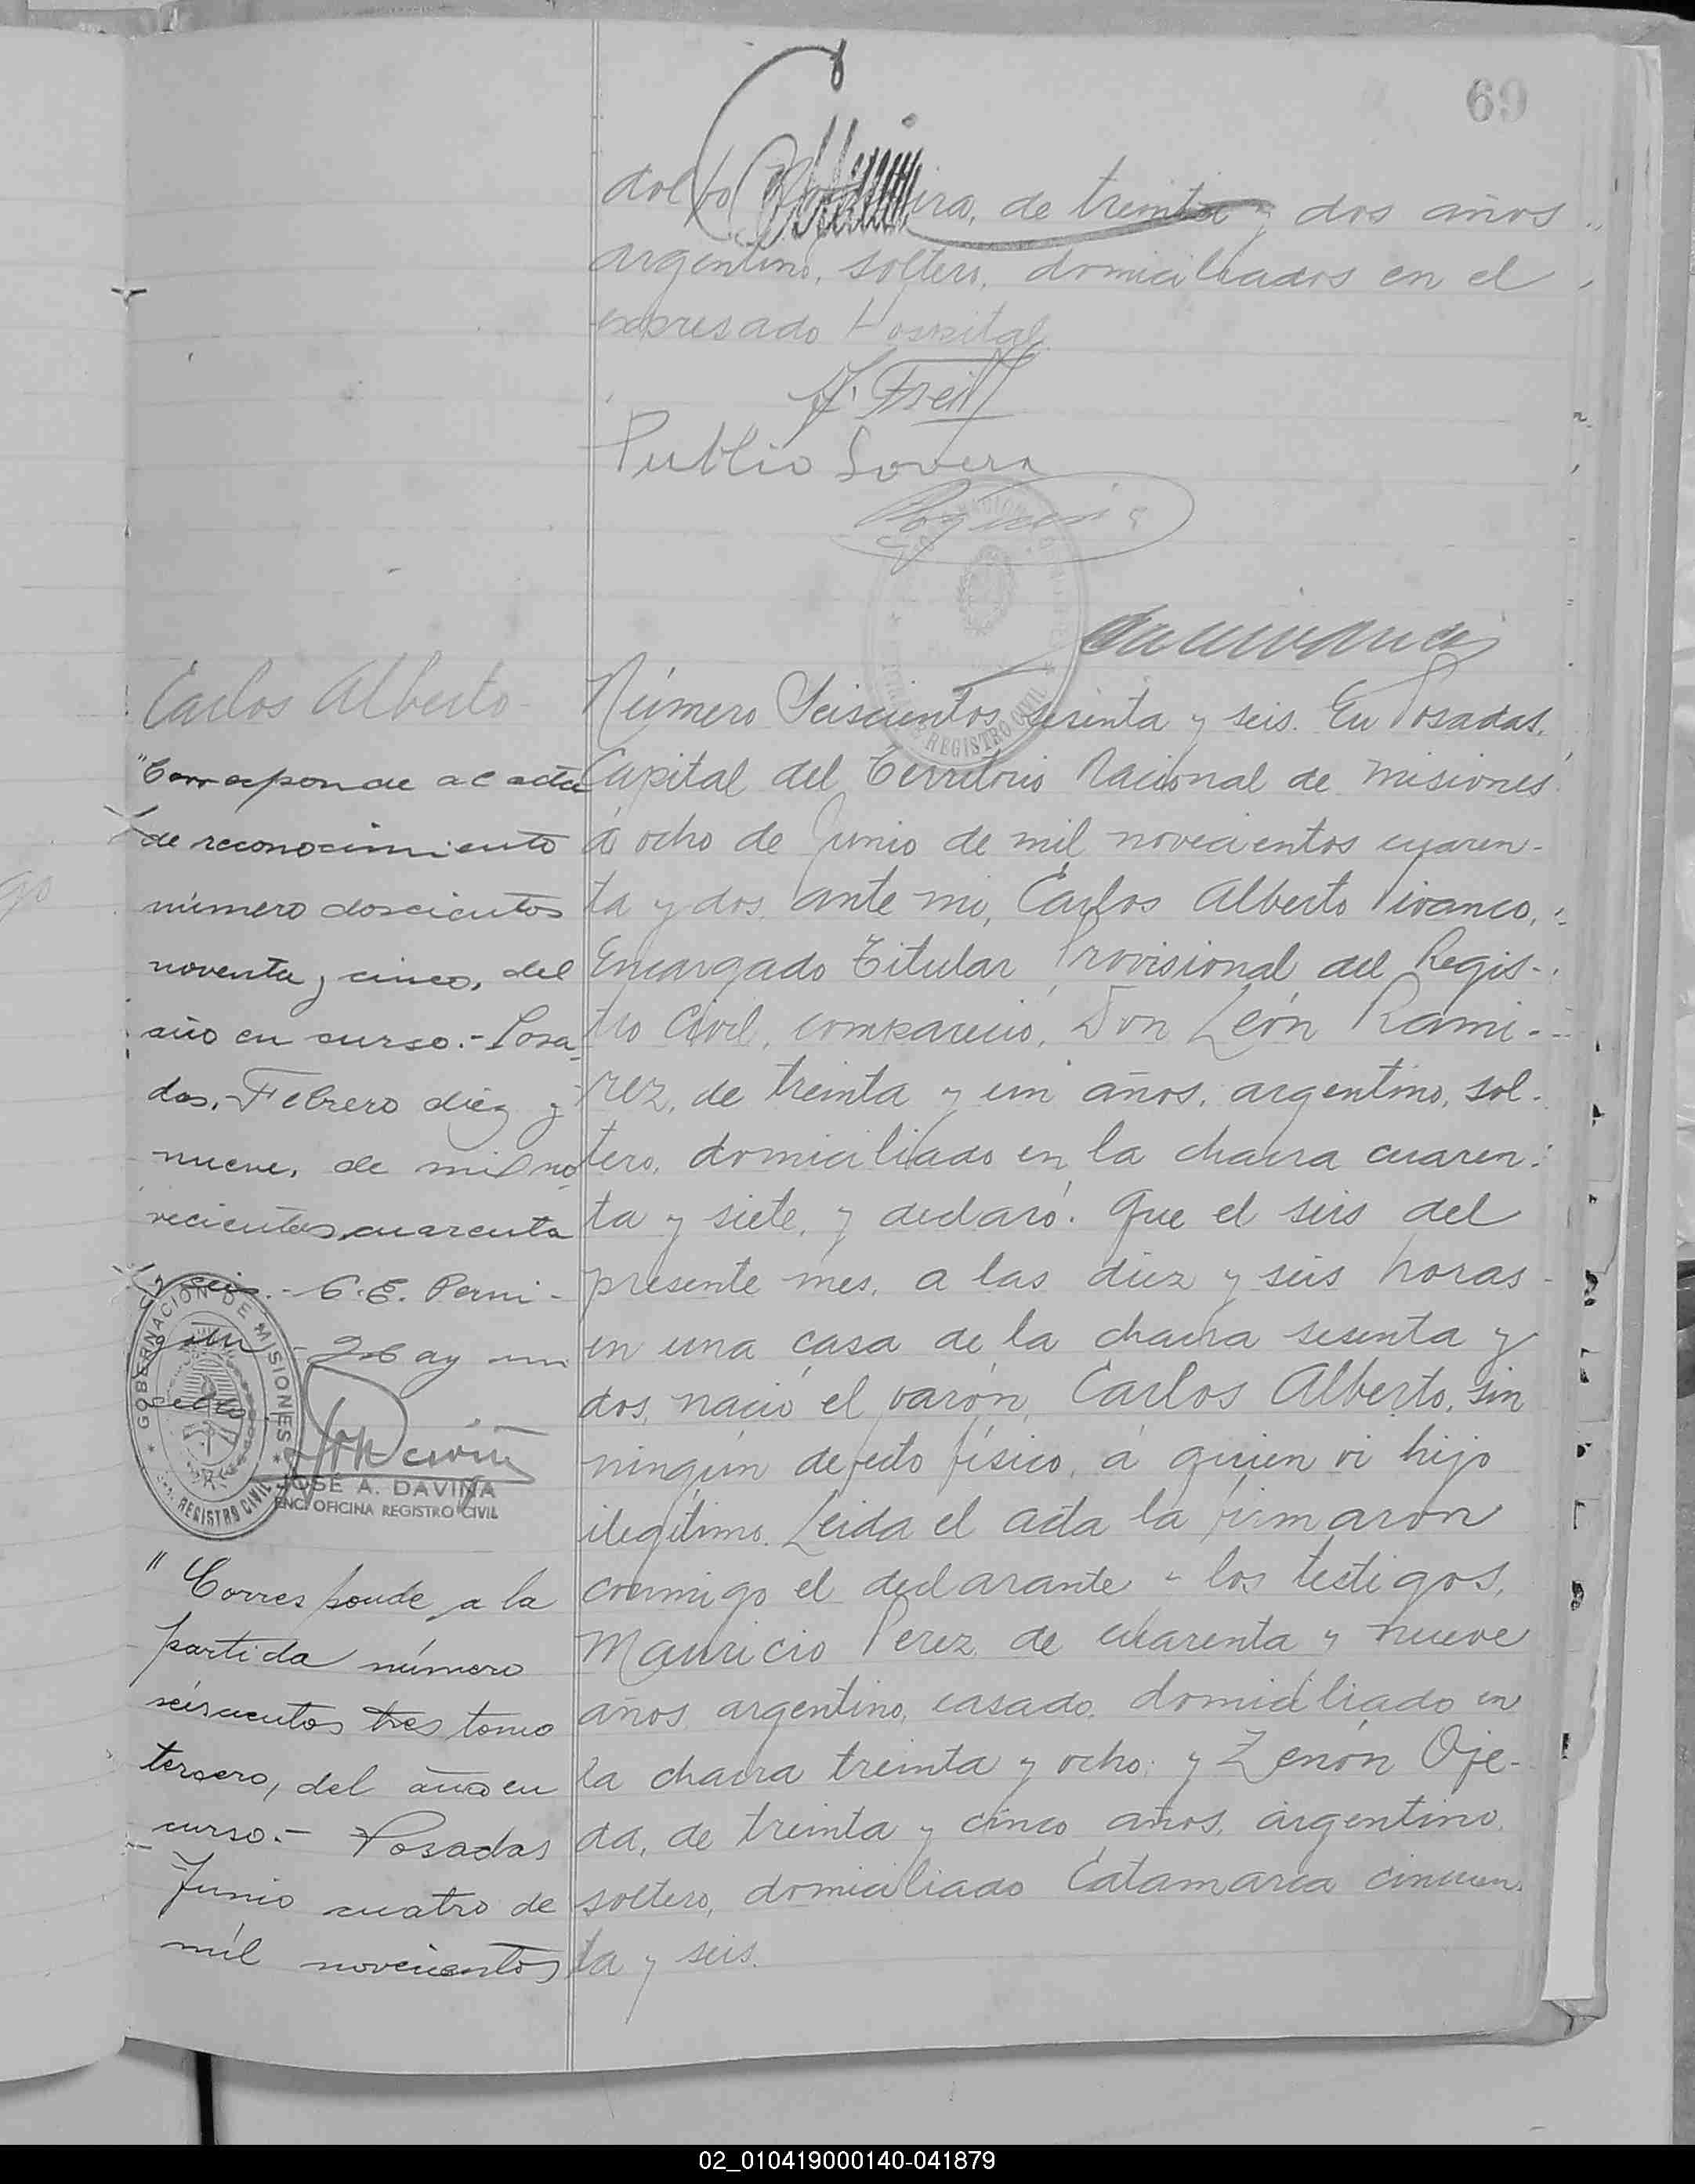 69
ira, de treinta y dos años
argentino, soltero, domiciliados en el
expresado Hospital.
Publio Lovera
Carlos Alberto
Número Seiscientos sesenta y seis. En Posadas,
Capital del Territorio Nacional de Misiones
á ocho de Junio de mil novecientos cuaren-
ta y dos, ante mi, Carlos Alberto Vivanco,
Encargado Titular Provisional del Regis-
tro Civil, compareció, Don León Rami-
rez, de treinta y un años, argentino, sol-
tero, domiciliado en la chacra cuaren-
ta y siete, y declaró: Que el seis del
presente mes, a las diez y seis horas
en una casa de la chacra sesenta y
dos, nació el varón, Carlos Alberto, sin
ningún defecto físico, á quien vi hijo
ilegítimo. Leida el acta la firmaron
conmigo el declarante y los testigos,
Mauricio Perez de cuarenta y nueve
años argentino, casado, domiciliado en
la chacra treinta y ocho; y Zenón Oje-
da, de treinta y cinco años, argentino
soltero, domiciliado Catamarca cincuen-
ta y seis.
"Corresponde al acta
de reconocimiento
número doscientos
noventa y cinco, del
año en curso.- Posa-
das, Febrero diez y
nueve, de mil no-
vecientos cuarenta
y seis.- C.E.
Hay un
sello
GOBERNACION DE MISIONES
REGISTRO CIVIL
JOSÉ A. DAVIÑA
ENC. OFICINA REGISTRO CIVIL
"Corresponde a la
partida número
seiscientos tres tomo
tercero, del año en
curso.- Posadas
Junio cuatro de
mil novecientos
REGISTRO CIVIL
02_010419000140-041879